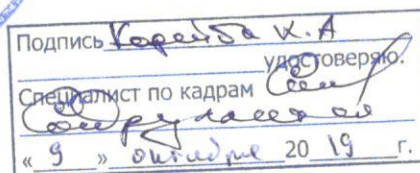 Подпись К.А
удостоверяю.
Специалист по кадрам
« 9 » октября 20 19 г.